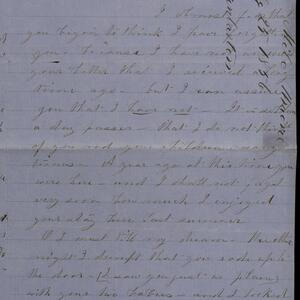 I almost fear that
you begin to think I have forgotten
you because I have not answered
your letter that I received a long
time ago - but I can assure
you that I have not - It is seldom
a day passes - that I do not think
of you and your children many
times - A year ago at this time you
were here - and I shall not forget
very soon how much I enjoyed
your stay here last summer
I must tell my dream - The other
night I dreamt that you rode up to
the door - I saw you just as plain
with your two babies - and I looked